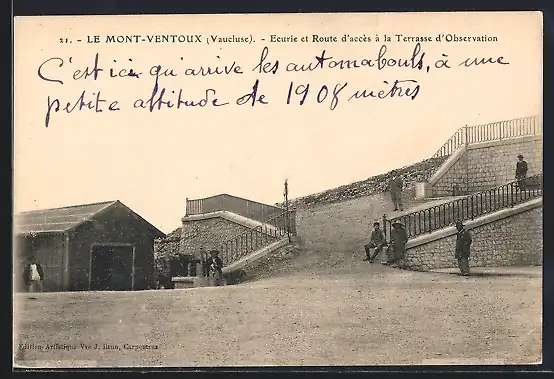 21. - LE MONT-VENTOUX (Vaucluse). - Ecurie et Route d'accès à la Terrasse d'Observation
C'est ici qu'arrive les automabouls, à une
petite altitude de 1908 mètres
Edition Artistique Vve J. Brun, Carpentras